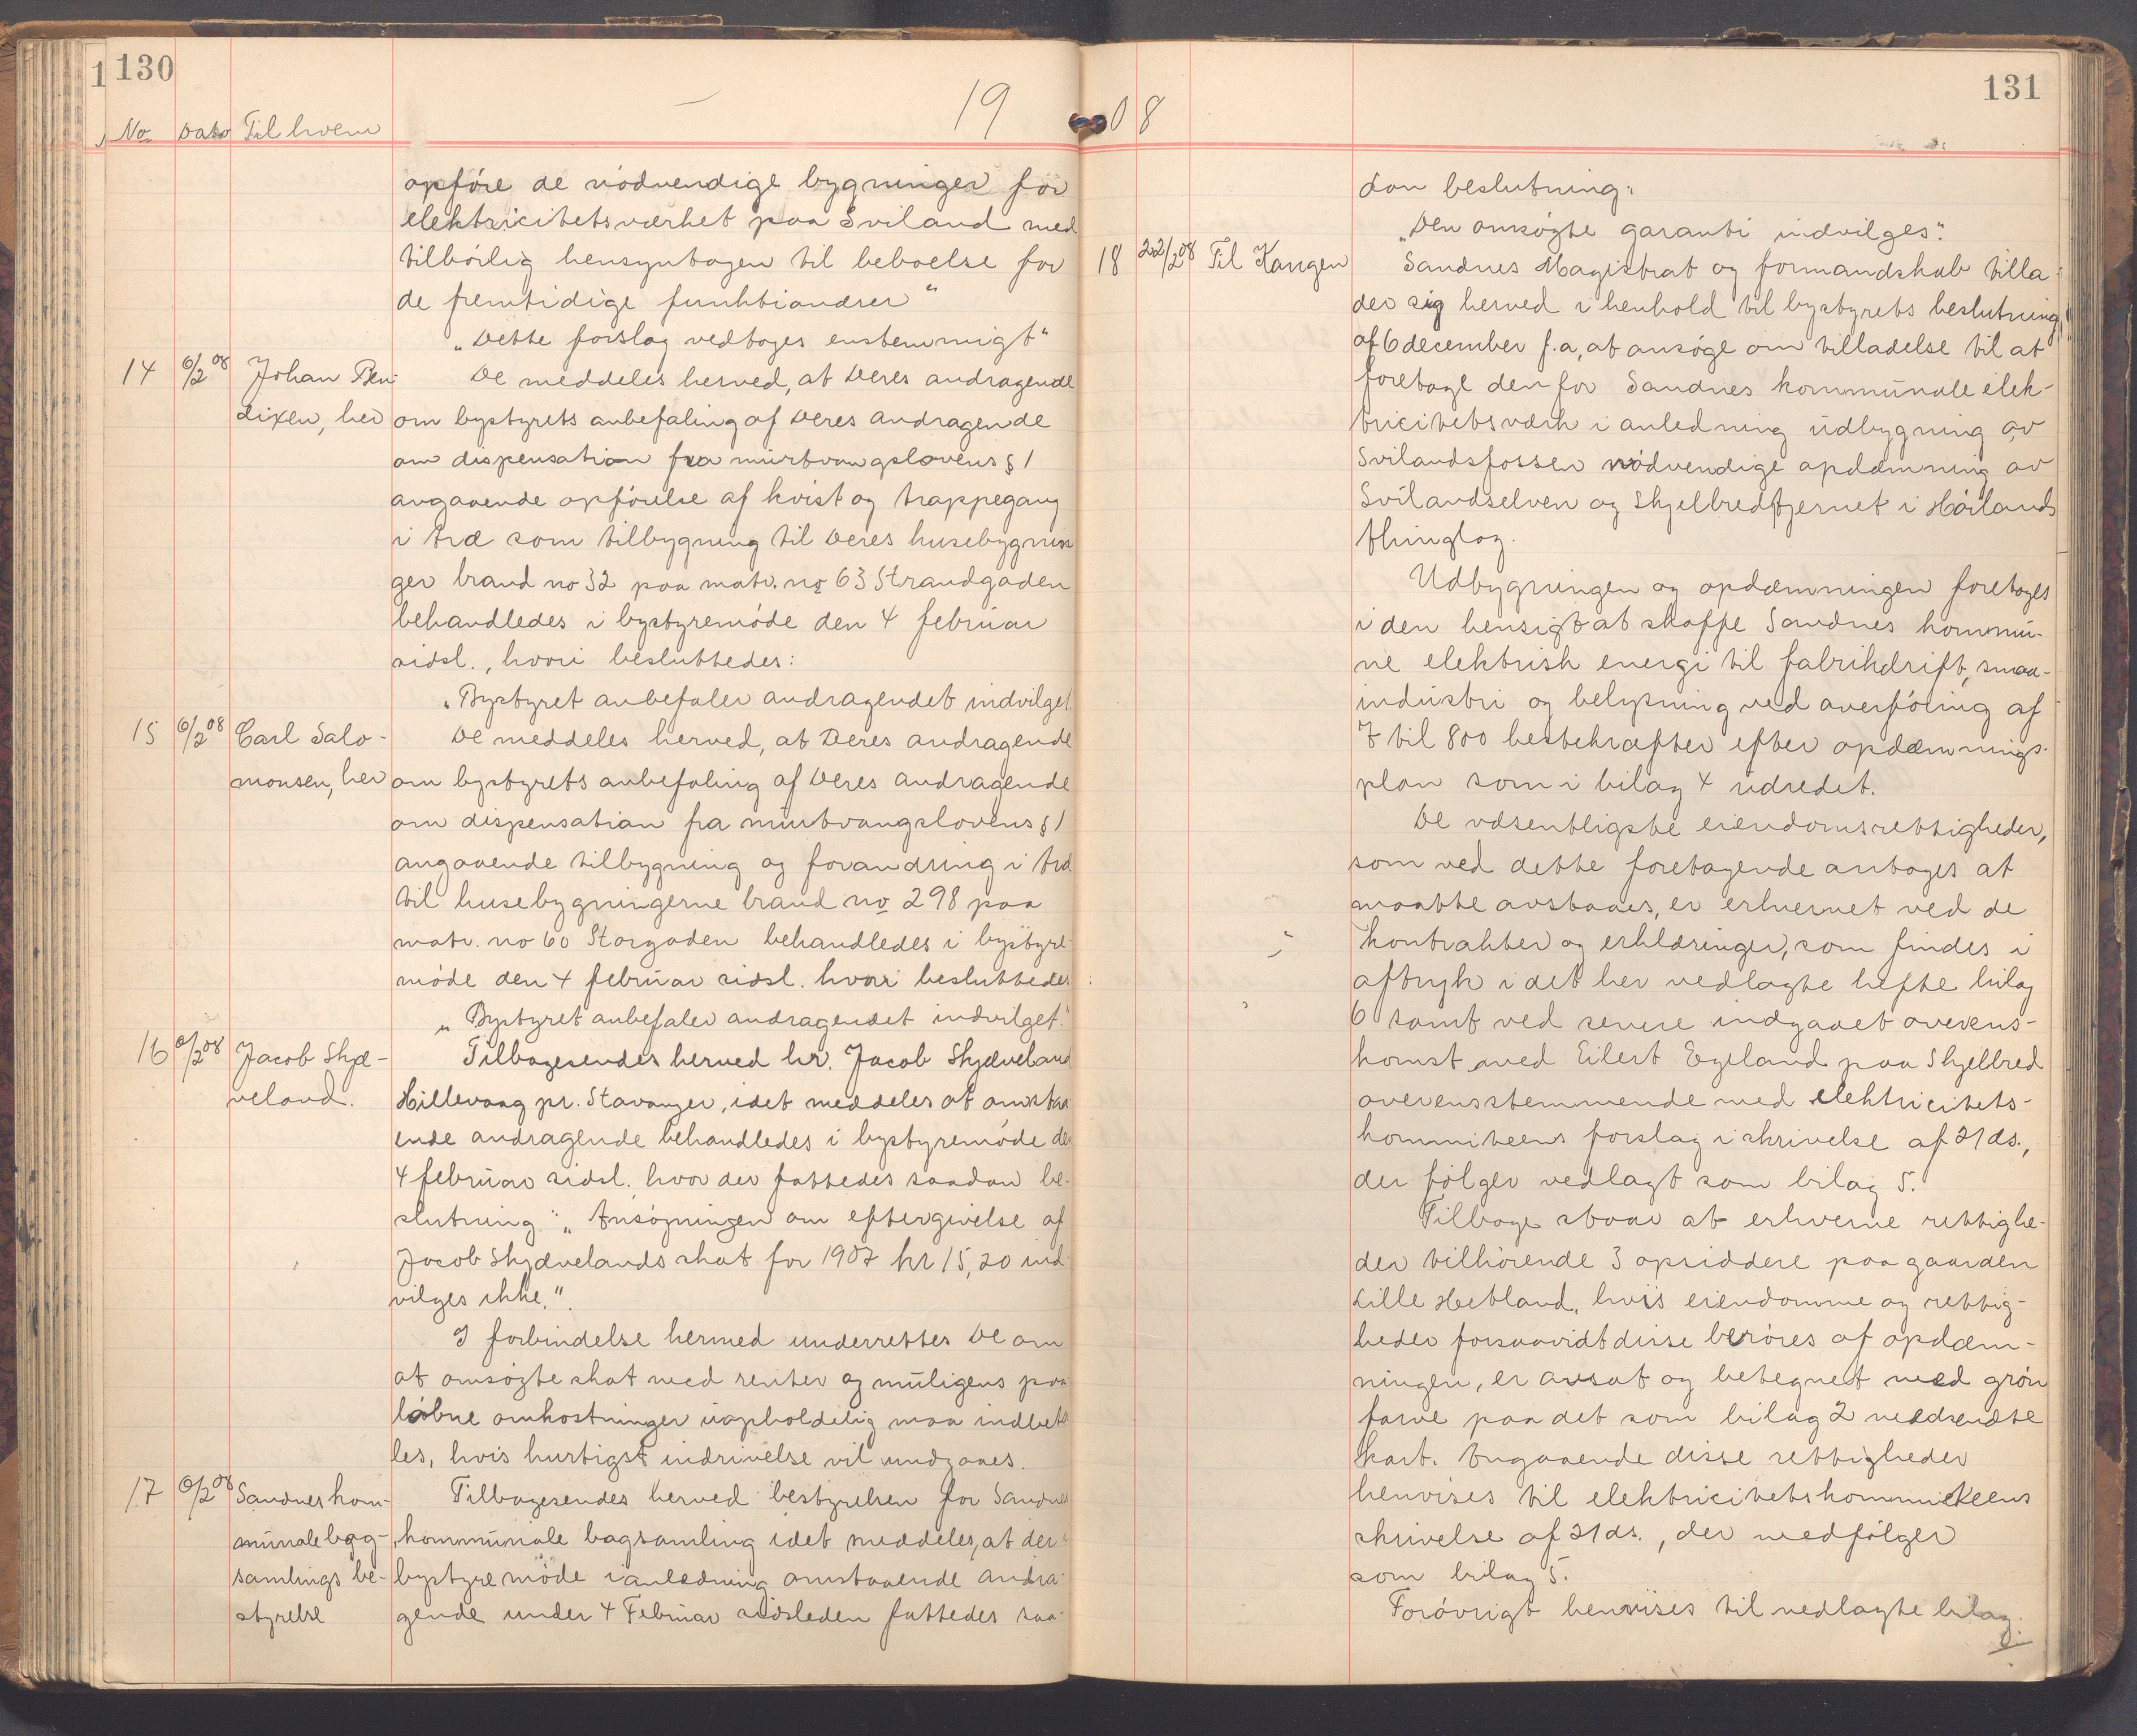 1 130
19
No. Dato Til hvem
opføre de nødvendige bygninger for
elektricitetsværket paa Sviland med
tilbørlig hensyntagen til beboelse for
de fremtidige funktionærer"
"Dette forslag vedtages enstemmigt"
14 6/2 08 Johan Ben- De meddeles herved, at Deres andragende
dixen, her om bystyrets anbefaling af Deres andragende
om dispensation fra murtvangslovens § 1
angaaende opførelse af kvist og trappegang
i træ som tilbygning til Deres husebygnin
ger brand no 32 paa matr. no 63 Strandgaden
behandledes i bystyremøde den 4 februar
sidsl., hvori besluttedes:
"Bystyret anbefaler andragendet indvilget.
15 6/2 08 Carl Salo- De meddeles herved, at Deres andragende
monsen, her om bystyrets anbefaling af Deres andragende
om dispensation fra murtvangslovens § 1
angaaende tilbygning og forandring i træ
til husebygningerne brand no 298 paa
matr. no 60 Storgaden behandledes i bystyre
møde den 4 februar sidsl. hvori besluttedes:
"Bystyret anbefaler andragendet indvilget."
16 6/2 08 Jacob Skjæ- Tilbagesendes herved hr. Jacob Skjæveland
veland. Hillevaag pr. Stavanger, idet meddeles at omstaa
ende andragende behandledes i bystyremøde den
4 februar sidsl. hvor der fattedes saadan be-
slutning: "Ansøgningen om eftergivelse af
Jacob Skjævelands skat for 1907 kr 15,20 ind-
vilges ikke."
I forbindelse hermed underrettes De om
at omsøgte skat med renter og muligens paa
løbne omkostninger uopholdelig maa indbeta
les, hvis hurtigst inddrivelse vil undgaaes.
17 6/2 08 Sandnes kom- Tilbagesendes herved bestyrelsen for Sandnes
munale bog- kommunale bogsamling idet meddeles, at der i
samlings be- bystyremøde i anledning omstaaende andra-
styrelse gende under 4 Februar sidsleden fattedes saa-
131
08
dan beslutning:
"Den ansøgte garanti indvilges."
18 22/2 08 Til Kongen Sandnes Magistrat og formandskab tilla-
der sig herved i henhold til bystyrets beslutning
af 6 december f.a, at ansøge om tilladelse til at
foretage den for Sandnes kommunale elek-
tricitetsværk i anledning udbygning av
Svilandsfossen nødvendige opdæmning av
Svilandselven og Skjelbredtjernet i Høilands
thinglag.
Udbygningen og opdæmningen foretages
i den hensigt at skaffe Sandnes kommu-
ne elektrisk energi til fabrikdrift, smaa-
industri og belysning ved overføring af
7 til 800 hestekræfter efter opdæmnings-
plan som i bilag 4 udredet.
De væsentligste eiendomsrettigheder,
som ved dette foretagende antages at
maatte avstaaes, er erhvervet ved de
kontrakter og erklæringer, som findes i
aftryk i det her vedlagte hefte bilag
6 samt ved senere indgaaet overens-
komst med Eilert Egeland paa Skjelbred
overensstemmende med elektricitets-
kommiteens forslag i skrivelse af 21 ds.,
der følger vedlagt som bilag 5.
Tilbage staar at erhverve rettighe-
der tilhørende 3 opsiddere paa gaarden
Lille Hetland, hvis eiendomme og rettig-
heder forsaavidt disse berøres af opdæm-
ningen, er avsat og betegnet med grøn
farve paa det som bilag 2 vedsendte
kart. Angaaende disse rettigheder
henvises til elektricitetskommiteens
skrivelse af 21 ds., der medfølger
som bilag 5.
Forøvrigt henvises til vedlagte bilag.